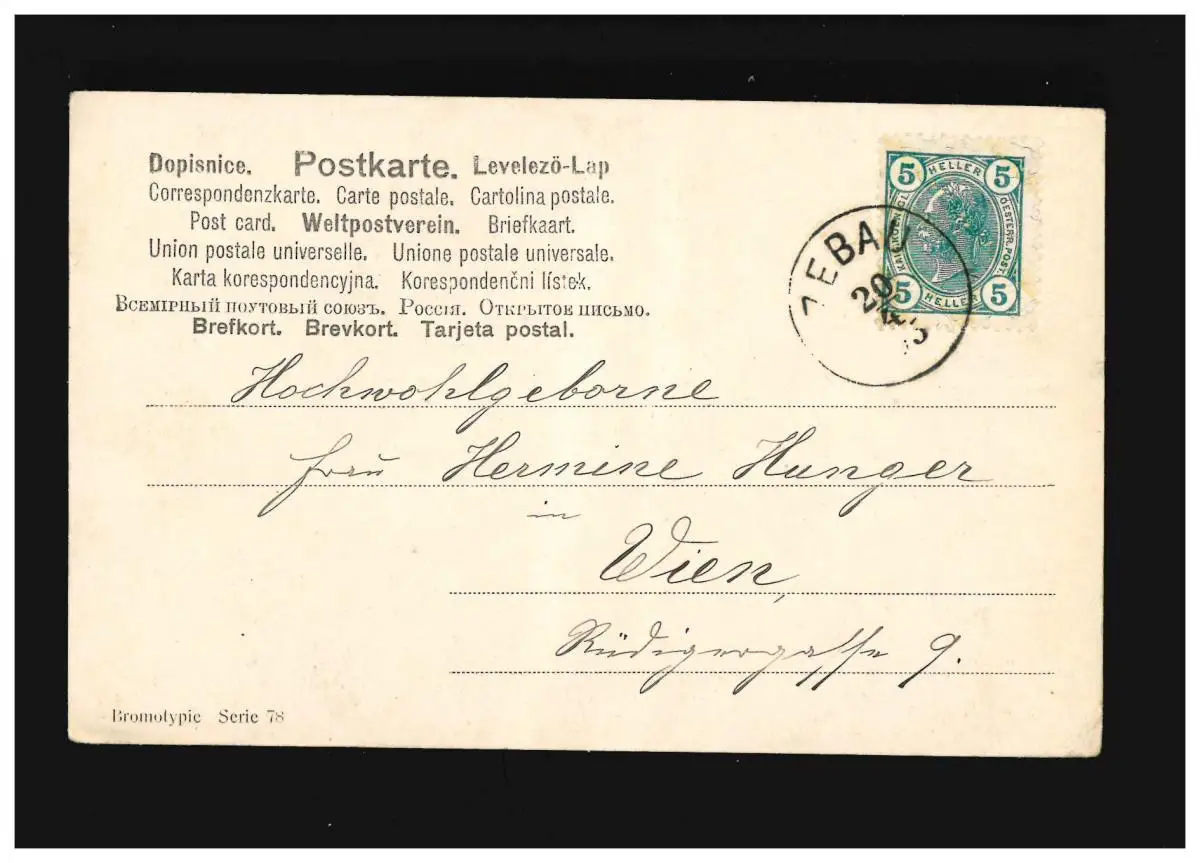 Dopisnice. Postkarte. Levelezö-Lap
Correspondenzkarte. Carte postale. Cartolina postale.
Post card. Weltpostverein. Briefkaart.
Union postale universelle. Unione postale universale.
Karta korespondencyjna. Korespondenčni lístek.
Всемірный поутовый союзъ. Россія. Открытое письмо.
Brefkort. Brevkort. Tarjeta postal.
5 HELLER 5
OESTERR. POST.
5 HELLER 5
ZEBAU
20
Hochwohlgeborne
Frau Hermine Hunger
in
Wien,
Rüdigergasse 9.
Bromotypie Serie 78